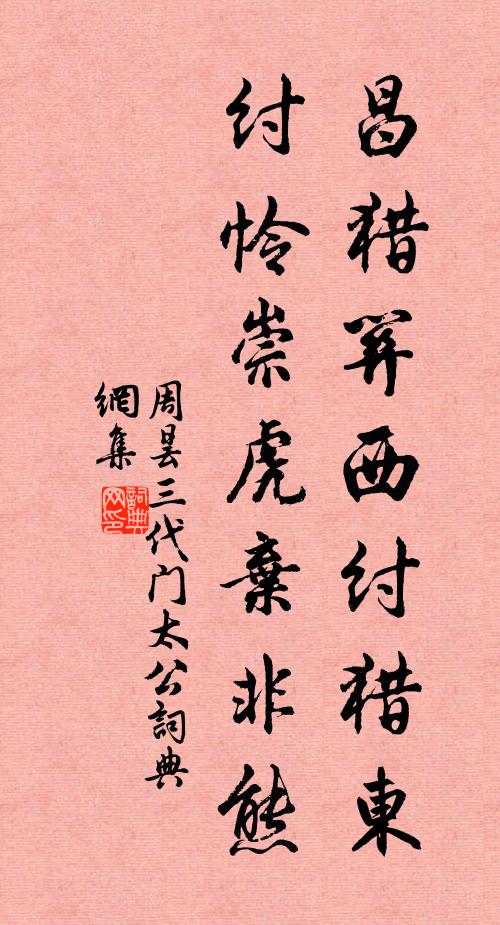 昌猎关西纣猎東
纣怜崇虎棄非熊
周昙三代门太公詞典
網集
詞典
网印